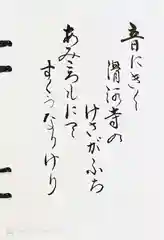 音にきく
滑河寺の
けさがふち
あみころもにて
すくうなりけり